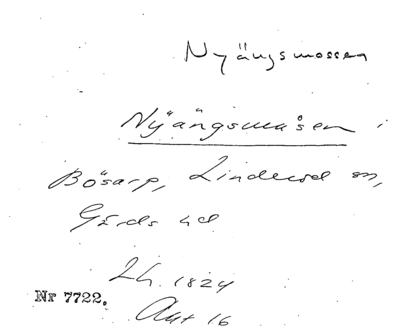 Nyängsmossen
Nÿängsmåsen i
Bösarp, Linderöd sn,
Gärds hd
Lh. 1824
Akt 16
Nr 7722.